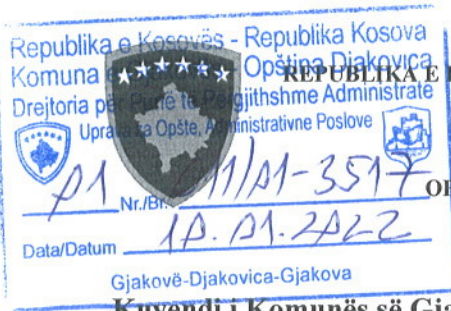 Republika e Kosovës - Republika Kosova
Komuna e Opština Djakovica
REPUBLIKA E
Drejtoria për Punë të Përgjithshme Administrate
Uprava za Opšte, Administrativne Poslove
01 Nr./Br. 011/01-3517
Data/Datum 10.01.2022
Gjakovë-Djakovica-Gjakova
Kuvendi i Komunës së Gja